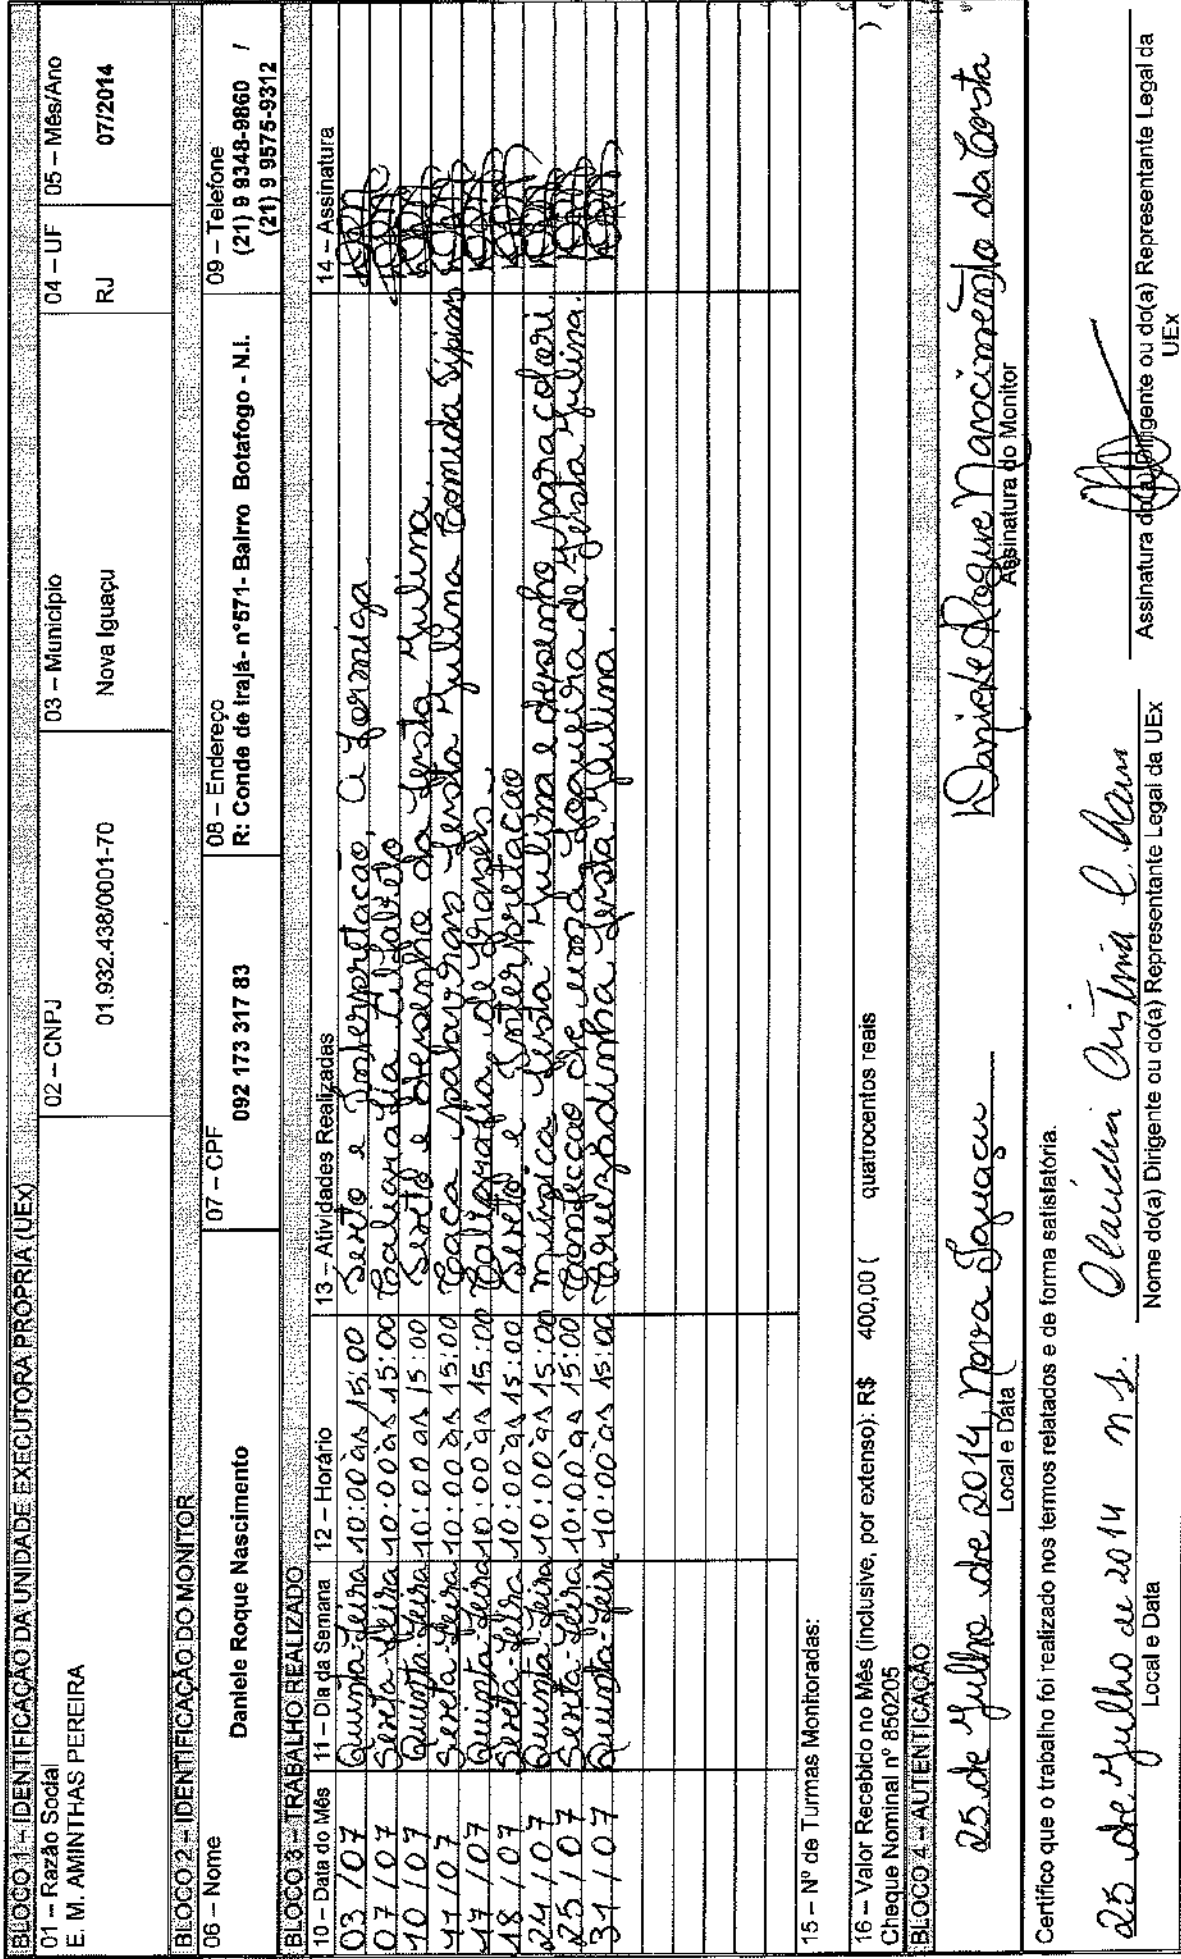 BLOCO 1 – IDENTIFICAÇÃO DA UNIDADE EXECUTORA PRÓPRIA (UEx)
01 – Razão Social
E. M. AMINTHAS PEREIRA
02 – CNPJ
01.932.438/0001-70
03 – Município
Nova Iguaçu
04 – UF
RJ
05 – Mês/Ano
07/2014
BLOCO 2 – IDENTIFICAÇÃO DO MONITOR
06 – Nome
Daniele Roque Nascimento
07 – CPF
092 173 317 83
08 – Endereço
R: Conde de Irajá- nº571- Bairro Botafogo - N.I.
09 – Telefone
(21) 9 9348-9860 /
(21) 9 9575-9312
BLOCO 3 – TRABALHO REALIZADO
10 – Data do Mês 11 – Dia da Semana 12 – Horário 13 – Atividades Realizadas 14 – Assinatura
03 / 07 Quinta-feira 10:00 às 15:00 Texto e Interpretação, A formiga.
07 / 07 Sexta-feira 10:00 às 15:00 Caligrafia Alfabeto
10 / 07 Quinta-feira 10:00 as 15:00 Texto e desenho da festa Julina.
11 / 07 Sexta-feira 10:00 às 15:00 Caça palavras festa Julina Comida
17 / 07 Quinta-feira 10:00 às 15:00 Caligrafia de frases.
18 / 07 Sexta-feira 10:00 às 15:00 Texto e Interpretação
24 / 07 Quinta-feira 10:00 às 15:00 música festa Julina e desenho para colori.
25 / 07 Sexta-feira 10:00 às 15:00 Confecção de uma fogueira de festa Julina.
31 / 07 Quinta-feira 10:00 às 15:00 Cruzadinha festa Julina.
15 – Nº de Turmas Monitoradas:
16 – Valor Recebido no Mês (inclusive, por extenso): R$ 400,00 ( quatrocentos reais )
Cheque Nominal nº 850205
BLOCO 4 – AUTENTICAÇÃO
25 de Julho de 2014, Nova Iguaçu
Local e Data
Daniele Roque Nascimento da Costa
Assinatura do Monitor
Certifico que o trabalho foi realizado nos termos relatados e de forma satisfatória.
25 de Julho de 2014 N I.
Local e Data
Claudia Cristina C.
Nome do(a) Dirigente ou do(a) Representante Legal da UEx
Assinatura do(a) Dirigente ou do(a) Representante Legal da
UEx